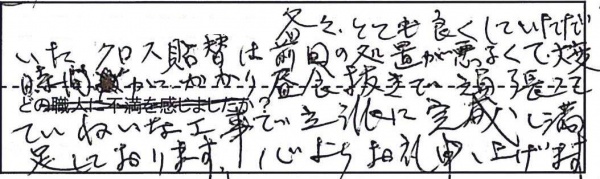 各々、とても良くしていただだ
いた クロス貼替は前回の処置が悪るくて大変
時間がかかり昼食抜きで頑張って
どの職人に不満を感じましたか?
ていねいな工事で立派に完成し満
足しております。心よりお礼申し上げます